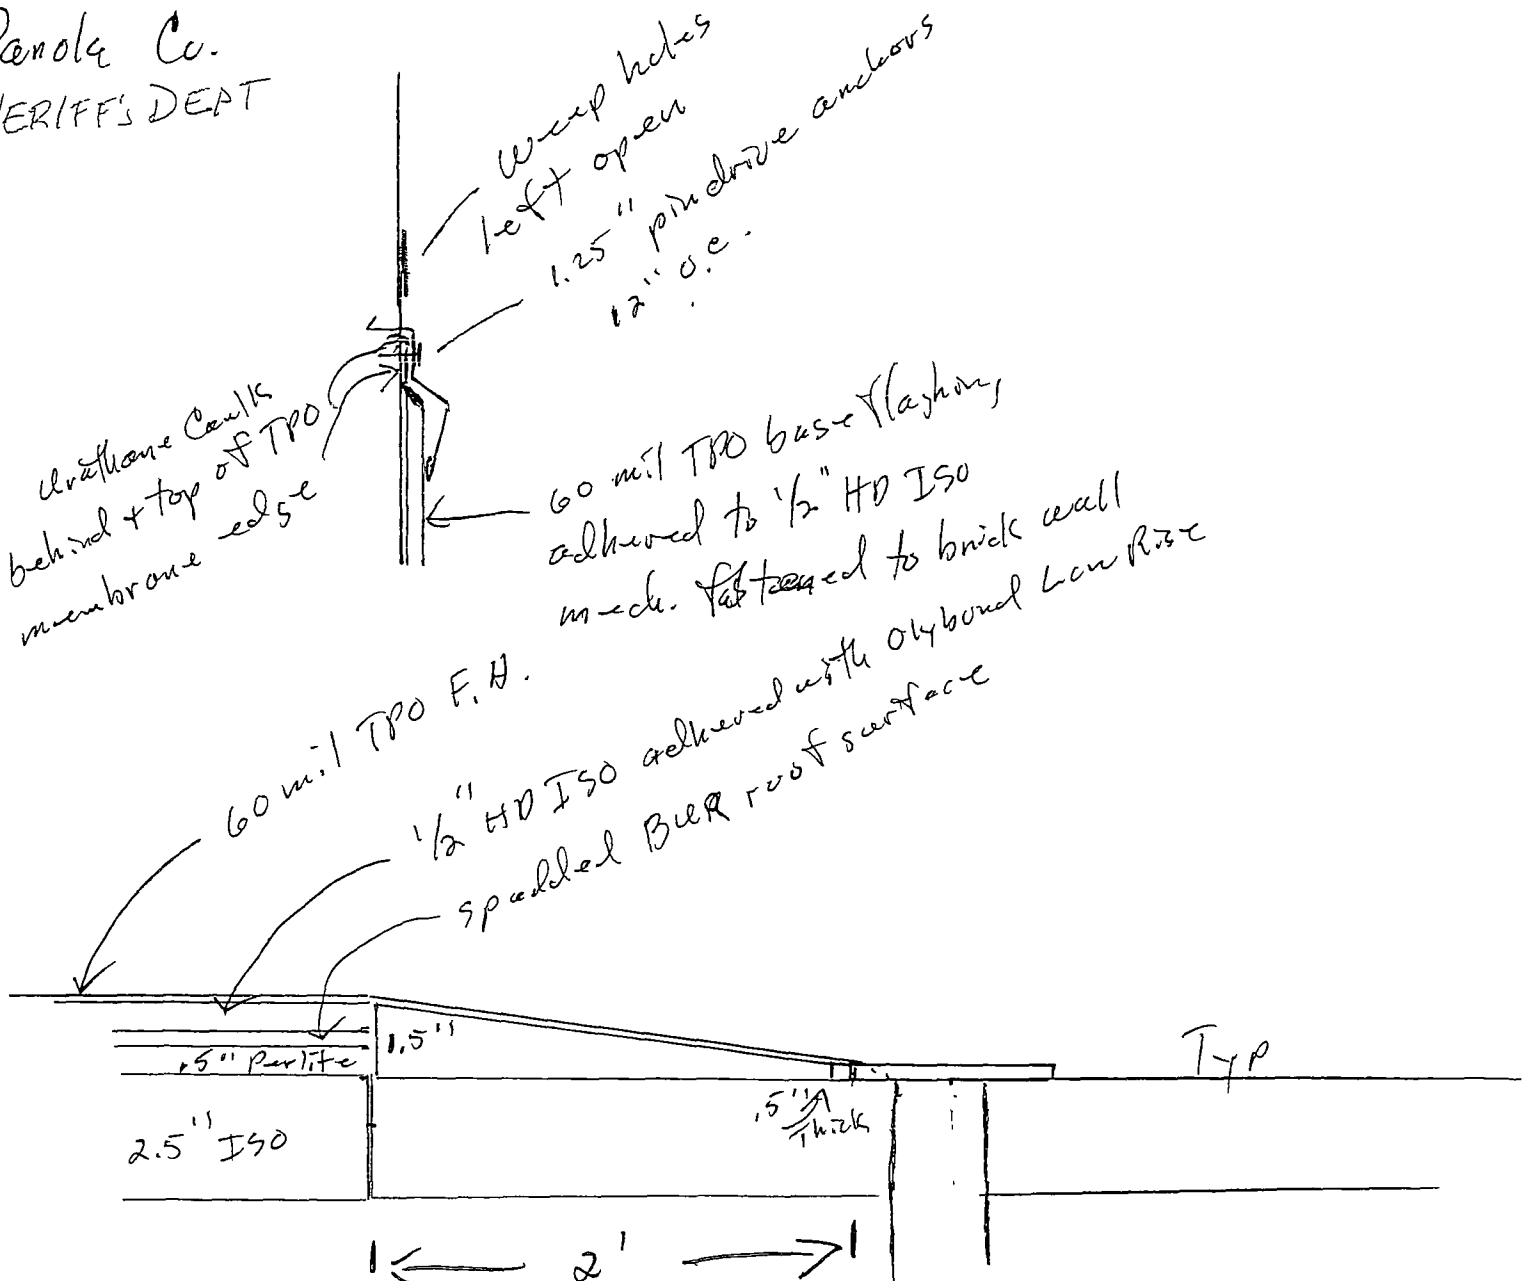 Panola Co.
SHERIFF'S DEPT
weep holes
left open
1.25" pin drive anchors
12" o.c.
Urathane Caulk
behind + top of TPO
membrane edge
60 mil TPO base flashing
adhered to 1/2" HD ISO
mech. fastened to brick wall
60 mil TPO F.A.
1/2" HD ISO adhered with Olybond Low Rise
spudded BUR roof surface
1.5"
.5" Perlite
Typ
.5"
Thick
2.5" ISO
2'